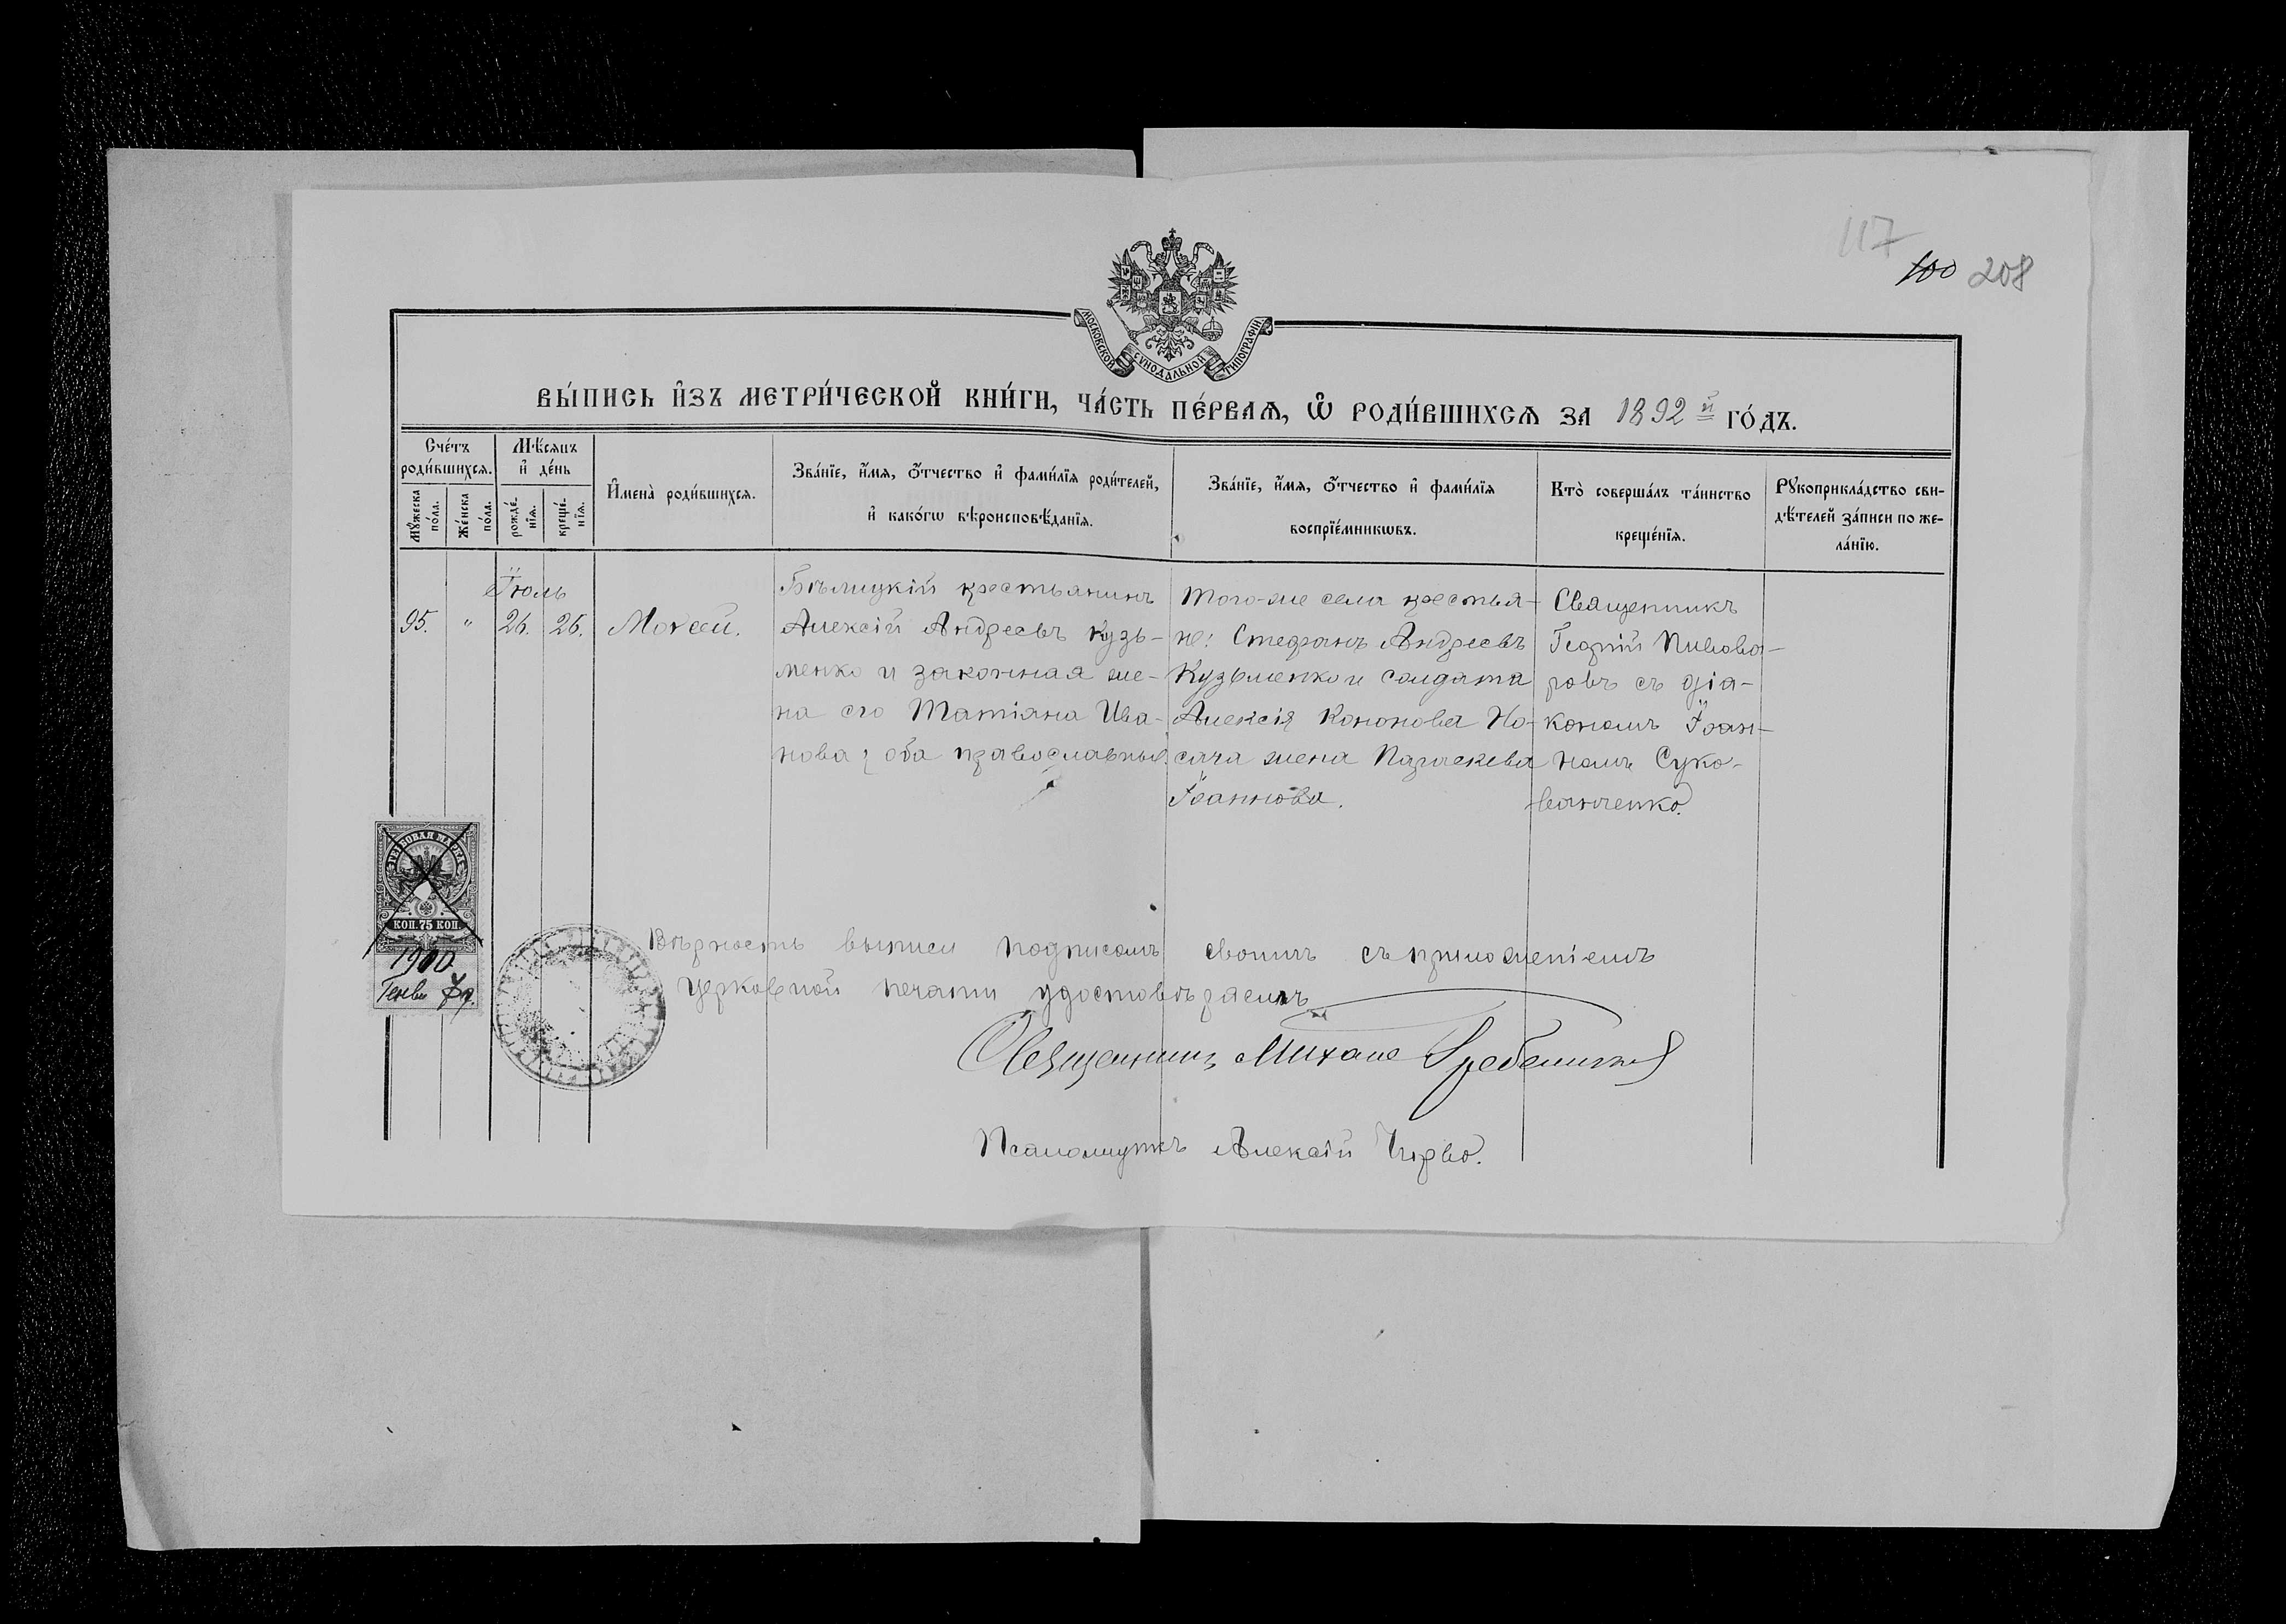 117
100 208
МОСКОВСКОЙ СѴНОДАЛЬНОЙ ТИПОГРАФІИ.
ВЫ́ПИСЬ И҆ЗЪ МЕТРИ́ЧЕСКОЙ КНИ́ГИ, ЧА́СТЬ ПЕ́РВАѦ, Ѽ РОДИ́ВШИХСѦ ЗА 1892й ГО́ДЪ.
Сче́тъ роди́вшихсѧ.
Мꙋ́жеска по́ла.
Же́нска по́ла.
Мѣ́сѧцъ и҆ де́нь
рожде́нїѧ.
креще́нїѧ.
И҆мена̀ роди́вшихсѧ.
Зва́нїе, и҆́мѧ, ѻ҆́тчество и҆ фами́лїѧ роди́телей,
и҆ како́гѡ вѣроисповѣ́данїѧ.
Зва́нїе, и҆́мѧ, ѻ҆́тчество и҆ фами́лїѧ
воспрїе́мникѡвъ.
Кто̀ соверша́лъ та́инство
креще́нїѧ.
Рꙋкоприкла́дство сви-
дѣ́телей за́писи по же-
ла́нїю.
Іюль
95. " 26. 26.
Моѵсей.
Бѣлицкій крестьянинъ
Алексій Андреевъ Кузь-
менко и законная же-
на его Татіяна Ива-
нова; оба православные.
того-же села крестья-
не: Стефанъ Андреевъ
Кузьменко и солдата
Алексія Кононова Но-
сача жена Параскева
Іоаннова.
Священникъ
Георгій Пивова-
ровъ съ діа-
кономъ Іоан-
номъ Суко-
ванченко.
ГЕРБОВАЯ МАРКА
КОП. 75 КОП.
1900
Генв
Вѣрность выписи подписомъ своимъ съ приложеніемъ
церковной печати удостовѣряемъ
Священникъ Михаилъ
Псаломщикъ Алексій